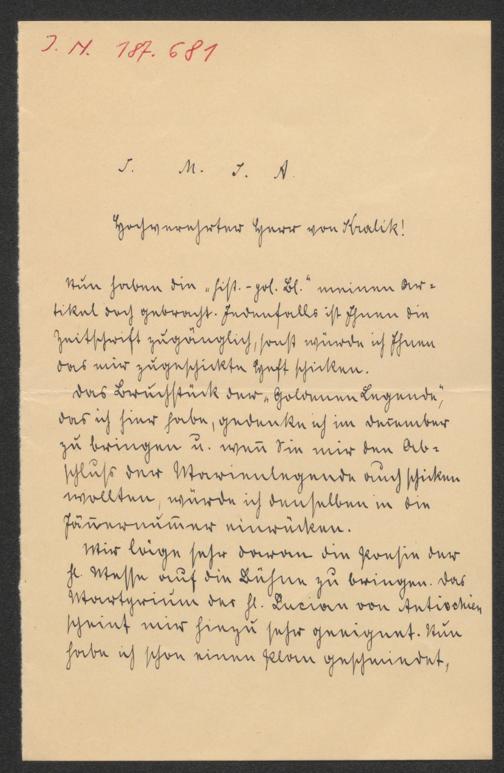 J. N. 187.681
J. M. J. A.
Hochverehrter Herr von Kralik!
Nun haben die „hist.-pol. Bl." meinen Ar=
tikel doch gebracht. Jedenfalls ist Ihnen die
Zeitschrift zugänglich, sonst würde ich Ihnen
das mir zugeschickte Heft schicken.
Das Bruchstück der „Goldenen Legende",
das ich hier habe, gedenke ich im December
zu bringen u. weñ Sie mir den Ab=
schluss der Marienlegende auch schicken
wollten, würde ich denselben in die
Jäñernum̃er einrücken.
Mir läge sehr daran die Poesie der
hl. Messe auf die Bühne zu bringen. Das
Martyrium des hl. Lucian von Antiochien
scheint mir hiezu sehr geeignet. Nun
habe ich schon einen Plan geschmiedet,